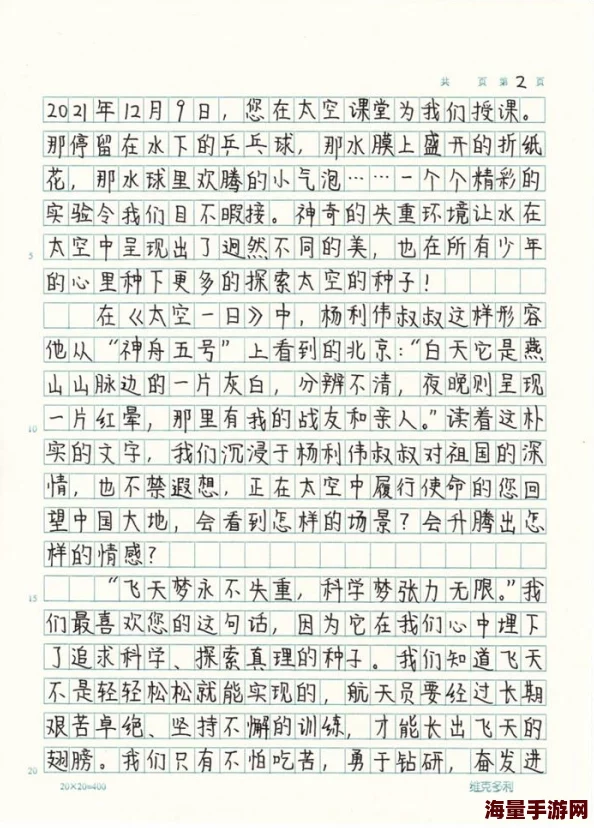 共 页 第 2 页
2021年12月9日，您在太空课堂为我们授课。
那停留在水下的乒乓球，那水膜上盛开的折纸
花，那水球里欢腾的小气泡……一个个精彩的
实验令我们目不暇接。神奇的失重环境让水在
5 太空中呈现出了迥然不同的美，也在所有少年
的心里种下更多的探索太空的种子！
在《太空一日》中，杨利伟叔叔这样形容
他从“神舟五号”上看到的北京：“白天它是燕
山山脉边的一片灰白，分辨不清，夜晚则呈现
10 一片红晕，那里有我的战友和亲人。”读着这朴
实的文字，我们沉浸于杨利伟叔叔对祖国的深
情，也不禁遐想，正在太空中履行使命的您回
望中国大地，会看到怎样的场景？会升腾出怎
样的情感？
15 “飞天梦永不失重，科学梦张力无限。”我
们最喜欢您的这句话，因为它在我们心中埋下
了追求科学、探索真理的种子。我们知道飞天
不是轻轻松松就能实现的，航天员要经过长期
艰苦卓绝、坚持不懈的训练，才能长出飞天的
20 翅膀。我们只有不怕吃苦，勇于钻研，奋发进
20×20=400 维克多利
海量手游网